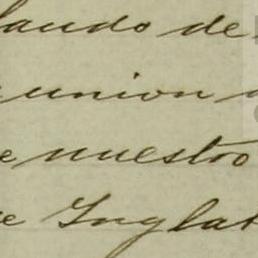 laudo de
union
e nuestro
e Inglat